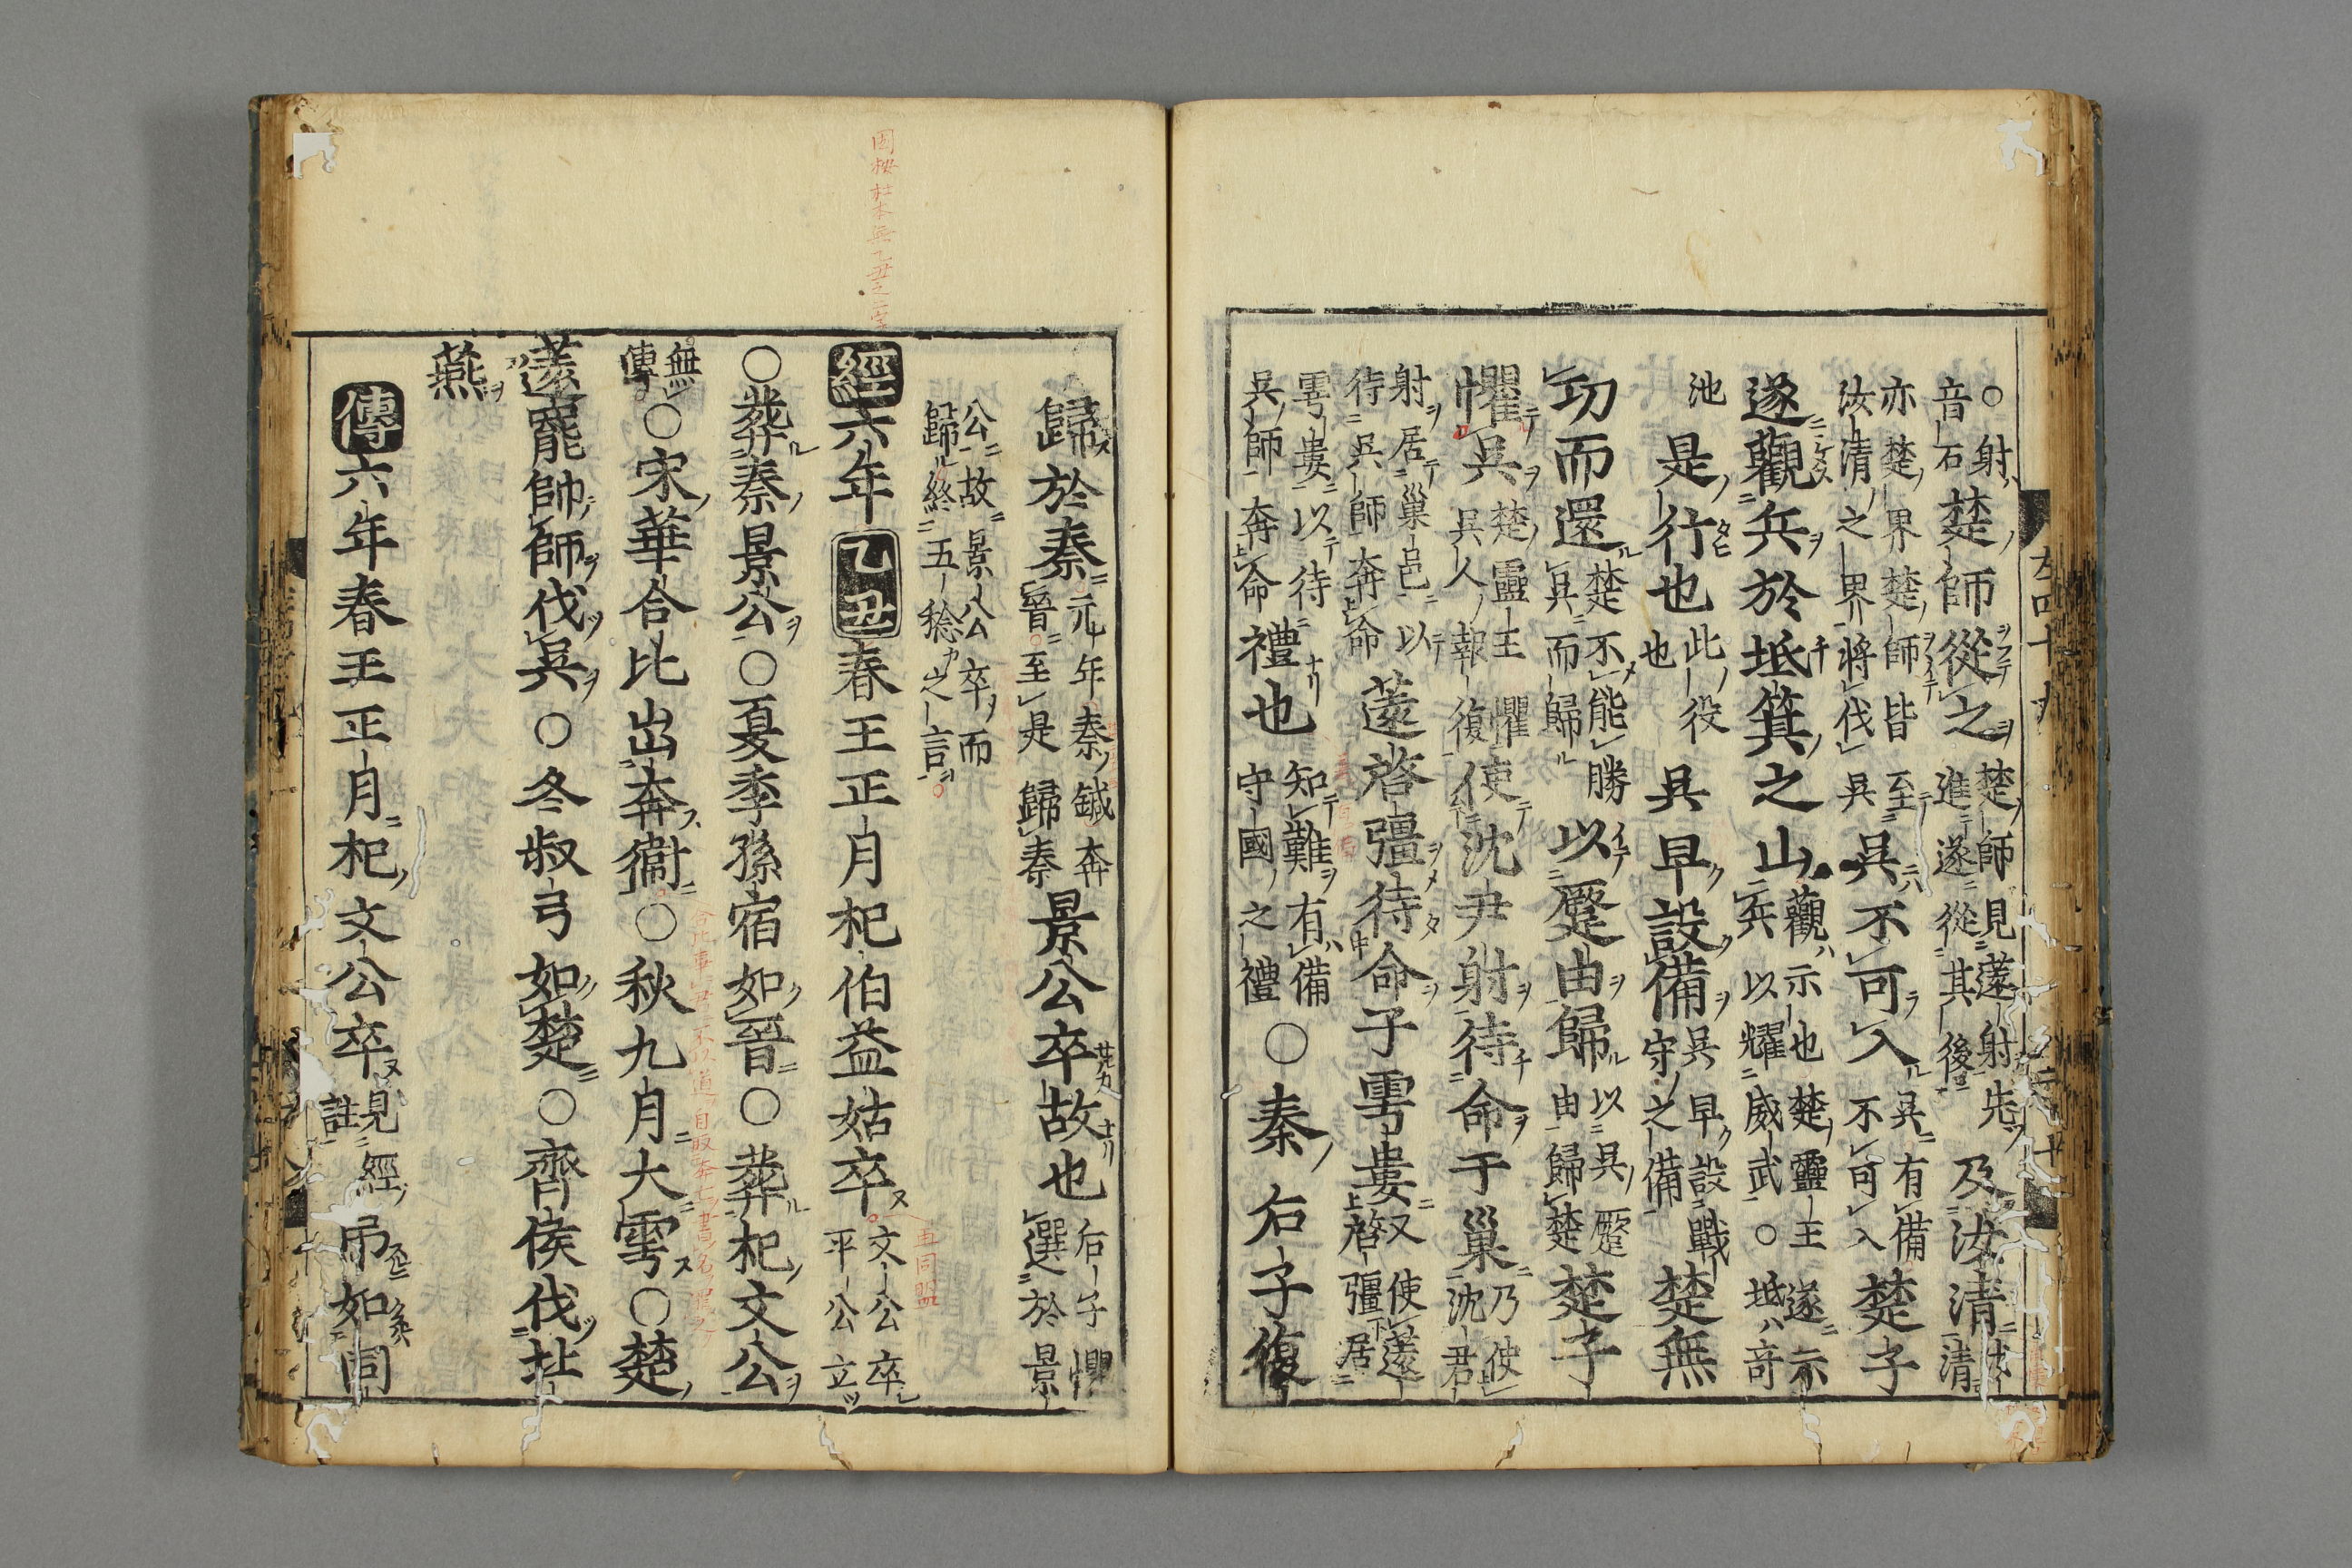 ○射音石楚師從之楚師見薳射先進遂從其後及汝清汝清
亦楚界楚師皆至汝清之界將伐吳吳不可入吳有備不可入楚子
遂觀兵於坻箕之山觀示也楚靈王遂示兵以耀威武○坻音
池是行也此役也吳早設備吳早設戰守之備楚無
功而還楚不能勝吳而歸以蹷由歸以吳蹷由歸楚楚子
懼吳楚靈王懼吳人報復使沈尹射待命于巢乃使沈尹
射居巢邑以待吳師奔命薳啓彊待命于雩婁又使薳啓彊居
雩婁以待吳師奔命禮也知難有備守國之禮○秦后子復
歸於秦元年秦鍼奔晉至是歸秦景公卒故也后子懼選於景
公故景公卒而歸終五稔之言
經六年乙丑春王正月杞伯益姑卒文公卒平公立
○葬秦景公○夏季孫宿如晉○葬杞文公
無傳○宋華合比出奔衛○秋九月大雩○楚
薳罷帥師伐吳○冬叔弓如楚○齊侯伐北
燕
傳六年春王正月杞文公卒見經註吊如同